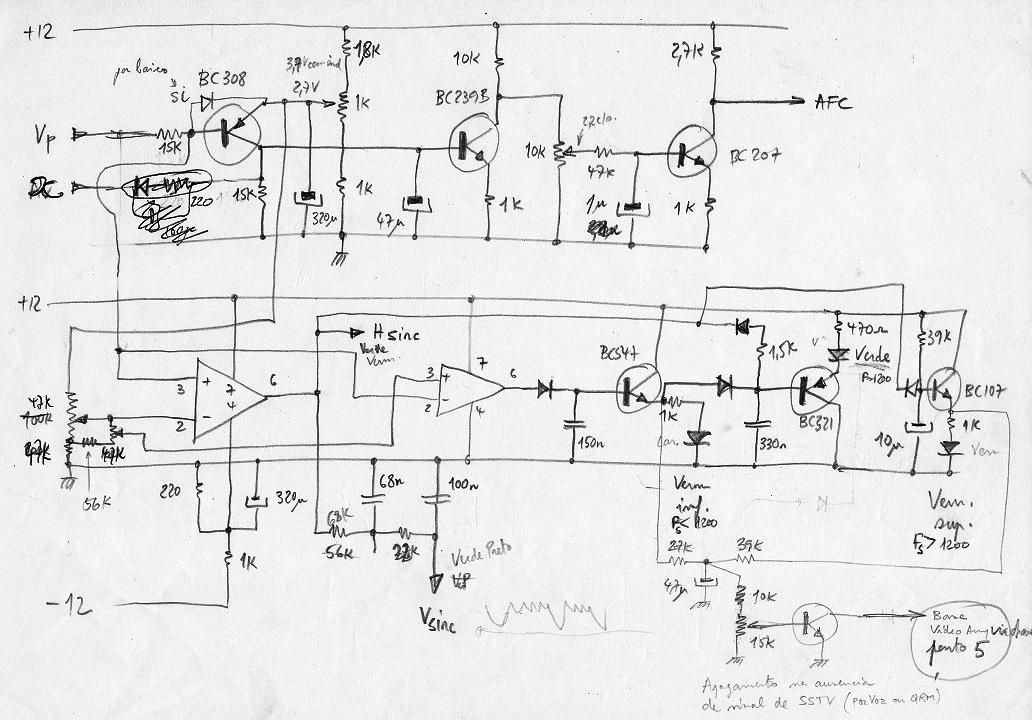 +12
1,8K
10K
2,7K
por baixo
Si
BC308
2,7V
1K
BC239B
AFC
Vp
15K
10K
47K
BC207
220
15K
320µ
1K
47µ
1K
1µ
1K
+12
H sinc
Verde
Verm.
BC547
1,5K
470Ω
39K
Verde
F=1200
3
+
7
6
-
4
2
3
+
7
6
2
-
4
47K
100K
BC321
BC107
1K
1K
150n
330n
10µ
Verm
56K
220
320µ
68n
100n
Verm
inf.
Fs < 1200
Verm.
sup.
Fs > 1200
68K
56K
1K
Verde Preto
27K
39K
-12
Vsinc
47µ
10K
15K
Base
Video Amp via
ponto 5
Apagamento na ausencia
de sinal de SSTV (por Voz ou QRM)